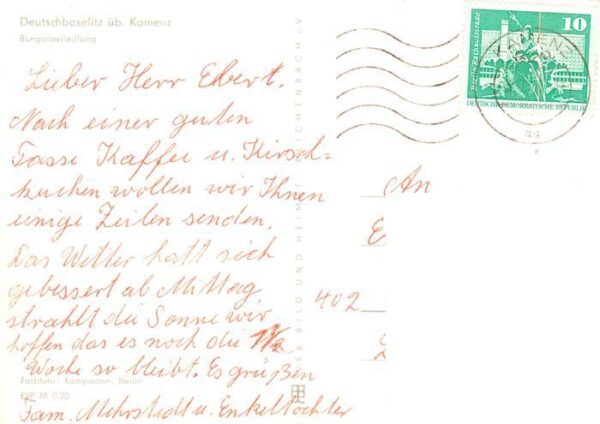 Deutschbaselitz üb. Kamenz
Bungalowsiedlung
Lieber Herr Ebert,
Nach einer guten
Tasse Kaffee u. Kirsch-
kuchen wollen wir Ihnen
einige Zeilen senden.
Das Wetter hatt sich
gebessert ab Mittag
strahlt die Sonne wir
hoffen das es noch die 1½
Woche so bleibt. Es grüßen
Fam. Mehrstedt u. Enkeltöchter
Farbfoto: Kampmann, Berlin
EVP M 0.20
BILD UND HEIMAT REICHENBACH i. V.
10
Berlin, Rathausstraße
DEUTSCHE DEMOKRATISCHE REPUBLIK
KAMENZ
aa
An
E
402